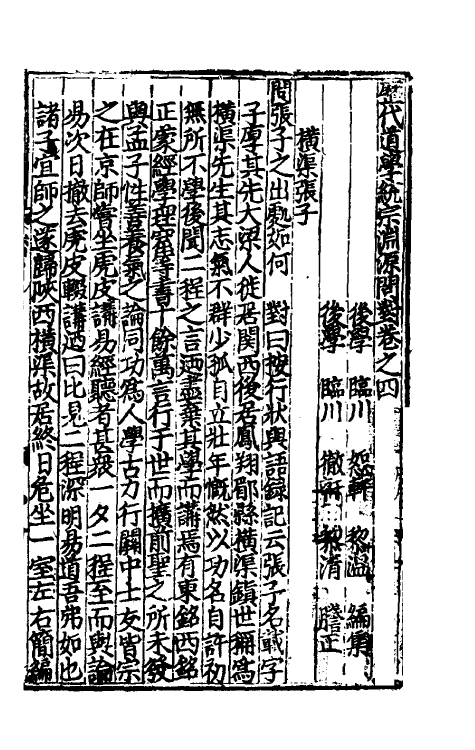 歷代道學統宗淵源問對卷之四
後學 臨川 黎溫 編集
後學 臨川 黎清 謄正
橫渠張子
問張子之出處如何 對曰按行狀與語錄記云張子名載字
子厚其先大梁人徙居関西後居鳳翔郿縣橫渠鎮世稱為
橫渠先生其志氣不群少孤自立壯年慨然以功名自許初
無所不學後聞二程之言廼盡棄其學而講焉有東銘西銘
正蒙經學理窟等書十餘萬言行于世而擴前聖之所未發
與孟子性善養氣之論同功為人學古力行關中士友皆宗
之在京師嘗坐虎皮講易經聽者甚眾一夕二程至而與論
易次日撤去虎皮輟講廼曰比見二程深明易道吾弗如也
諸子宜師之遂歸陝西橫渠故居終日危坐一室左右簡編